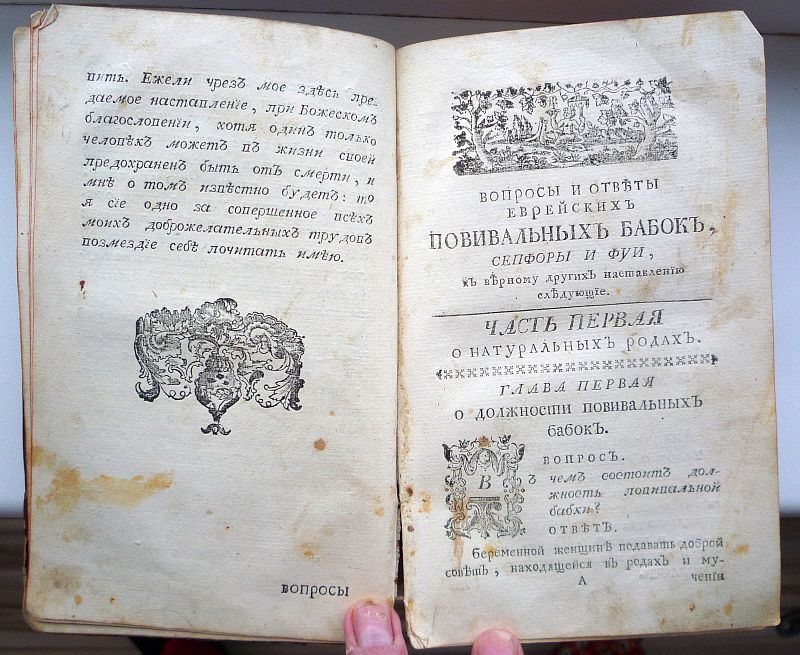 вить. Ежели чрезъ мое здѣсь пре-
даемое наставленіе, при Божескомъ
благословеніи, хотя одинъ только
человѣкъ можетъ въ жизни своей
предохраненъ быть отъ смерти, и
мнѣ о томъ извѣстно будетъ: то
я сіе одно за совершенное всѣхъ
моихъ доброжелательныхъ трудовъ
возмездіе себѣ почитать имѣю.
вопросы
ВОПРОСЫ И ОТВѢТЫ
ЕВРЕЙСКИХЪ
ПОВИВАЛЬНЫХЪ БАБОКЪ,
СЕПФОРЫ И ФУИ,
къ вѣрному другихъ наставленію
слѣдующіе.
ЧАСТЬ ПЕРВАЯ
О НАТУРАЛЬНЫХЪ РОДАХЪ.
ГЛАВА ПЕРВАЯ
О ДОЛЖНОСТИ ПОВИВАЛЬНЫХЪ
БАБОКЪ.
ВОПРОСЪ.
Въ чемъ состоитъ дол-
жность повивальной
бабки?
ОТВѢТЪ.
беременной женщинѣ подавать доброй
совѣтъ, находящейся въ родахъ и му-
А
ченіи